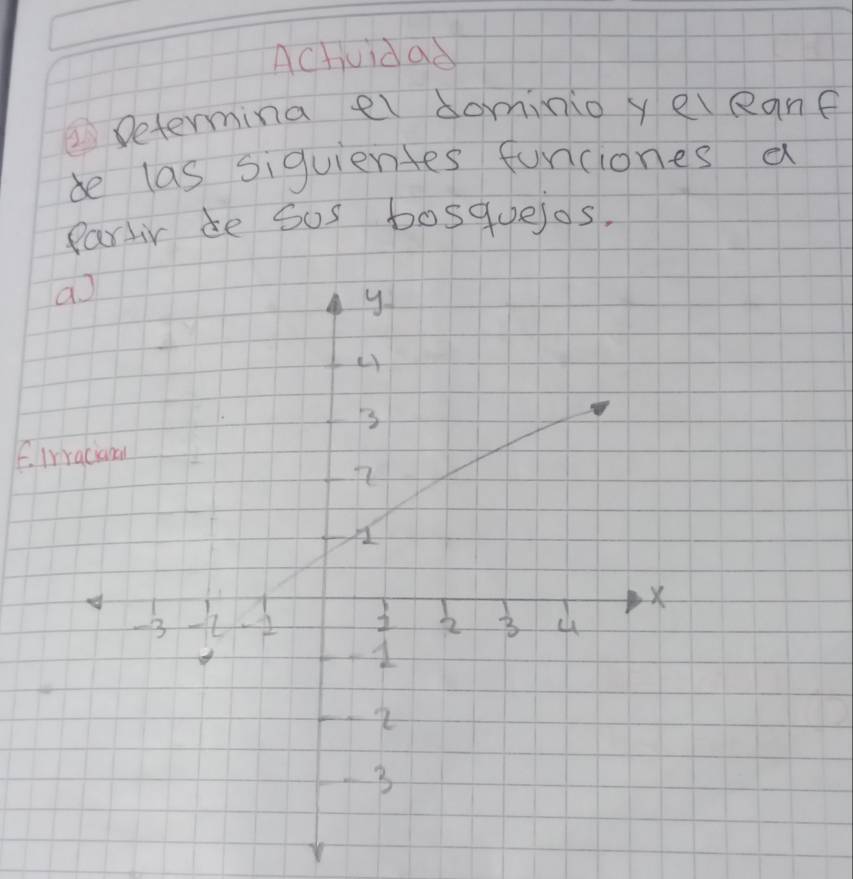 Actividad
① Determina el dominio y el Ran f
de las siguientes funciones a
Partir de sus bosquejos.
a)
y
4
3
F. Irracional
2
1
x
-3 -2 -1 1 2 3 4
-1
-2
-3